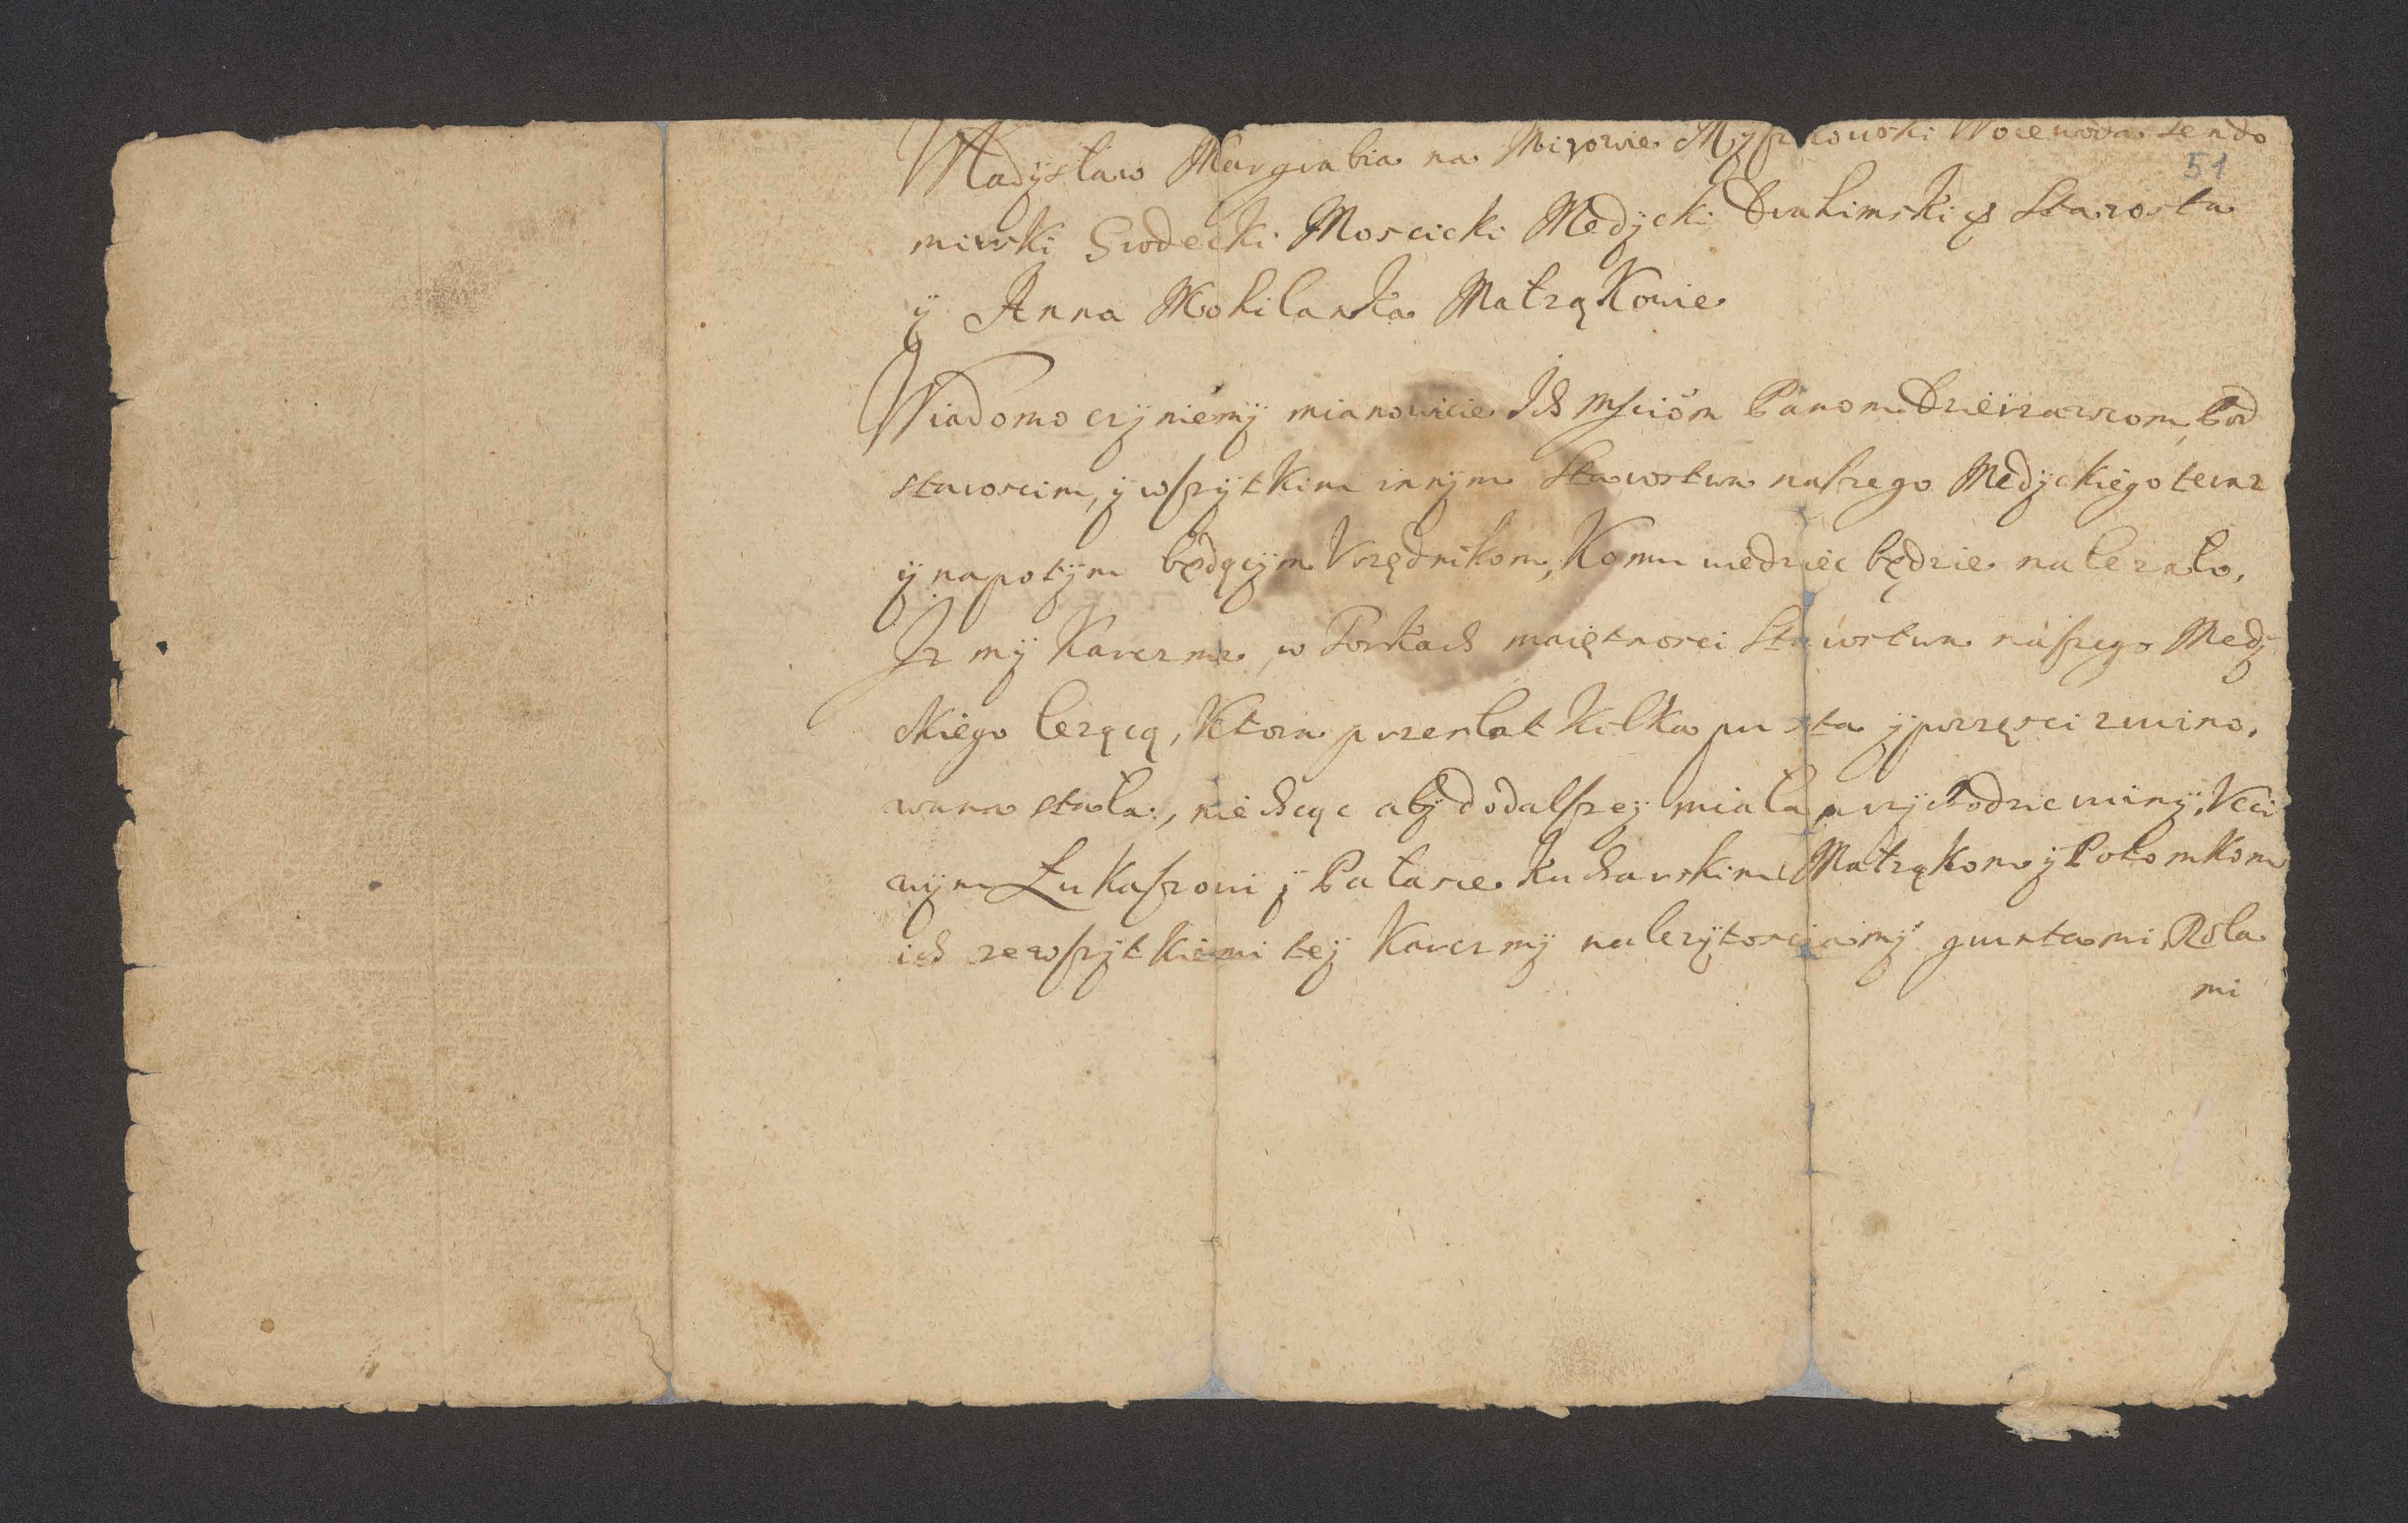 Władysław Margrabia na Mirowie Myszkowski Woiewoda Sendo
51
mirski Grodecki Moscicki Medycki Drahimski & Starosta
ÿ Anna Mohilanka Małząkowie
Wiadomo czÿniemÿ mianowicie Ich Mściom Panom Dzierzawcom, Pod
staroscim, ÿ wszÿtkim innÿm Starostwa naszego Medÿckiego teraz
ÿ napotÿm będącÿm Vrzędnikom, Komu wiedziec będzie nalezało,
Jz mÿ Karczme w Torkach maiętnosci Starostwa naszego Medÿ
ckiego lezącą, Ktora przez lat kilka pusta ÿ poczęsci zruino,
wana stała, nie chcąc abÿ do dalszeÿ miała przÿchodzic ruinÿ, Vcci
wÿm Łukaszowi ÿ Palasce Kucharskim Małząkom ÿ Potomkom
ich ze wszÿtkiemi teÿ Karczmÿ nalezÿtosciamÿ gruntami, Rola
mi